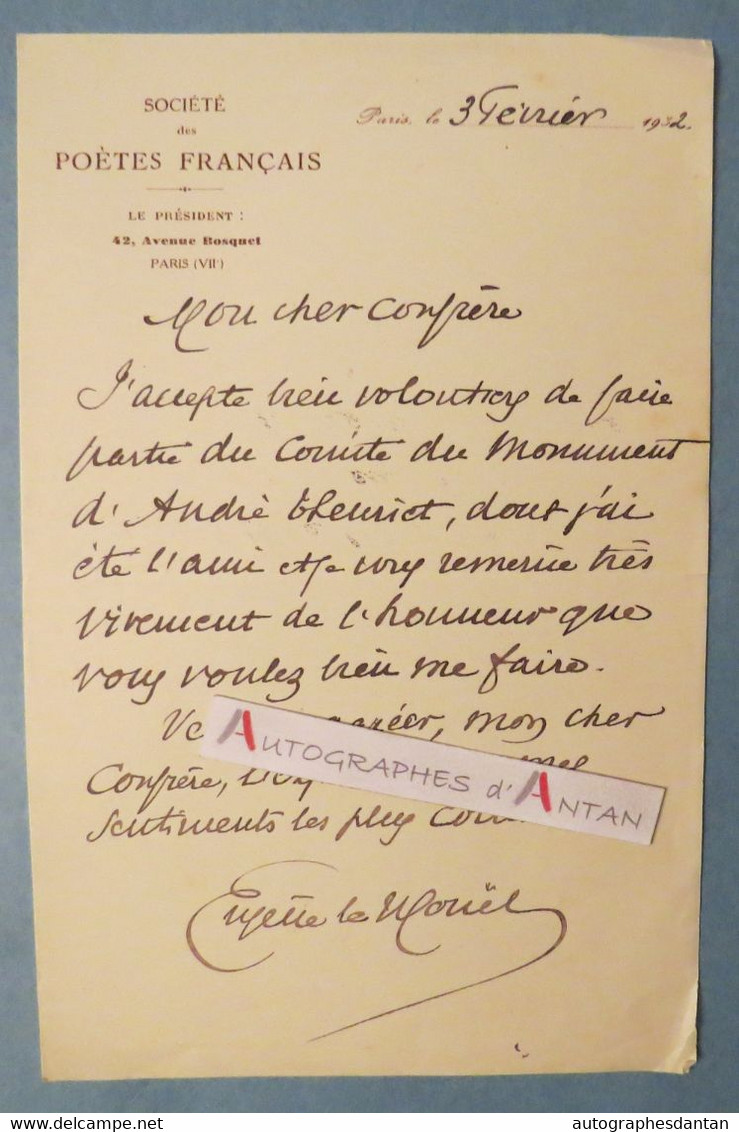 SOCIÉTÉ
des
POÈTES FRANÇAIS
LE PRÉSIDENT :
42, Avenue Bosquet
PARIS (VIIe)
Paris, le 3 Février 1932.
Mon cher confrère
J'accepte bien volontiers de faire
partie du Comité du Monument
d'André Theuriet, dont j'ai
été l'ami et je vous remercie très
vivement de l'honneur que
vous voulez bien me faire.
agréer, mon cher
Confrère, mes
sentiments les plus
Eugène le Mouël
AUTOGRAPHES d'ANTAN
www.delcampe.net
autographesdantan